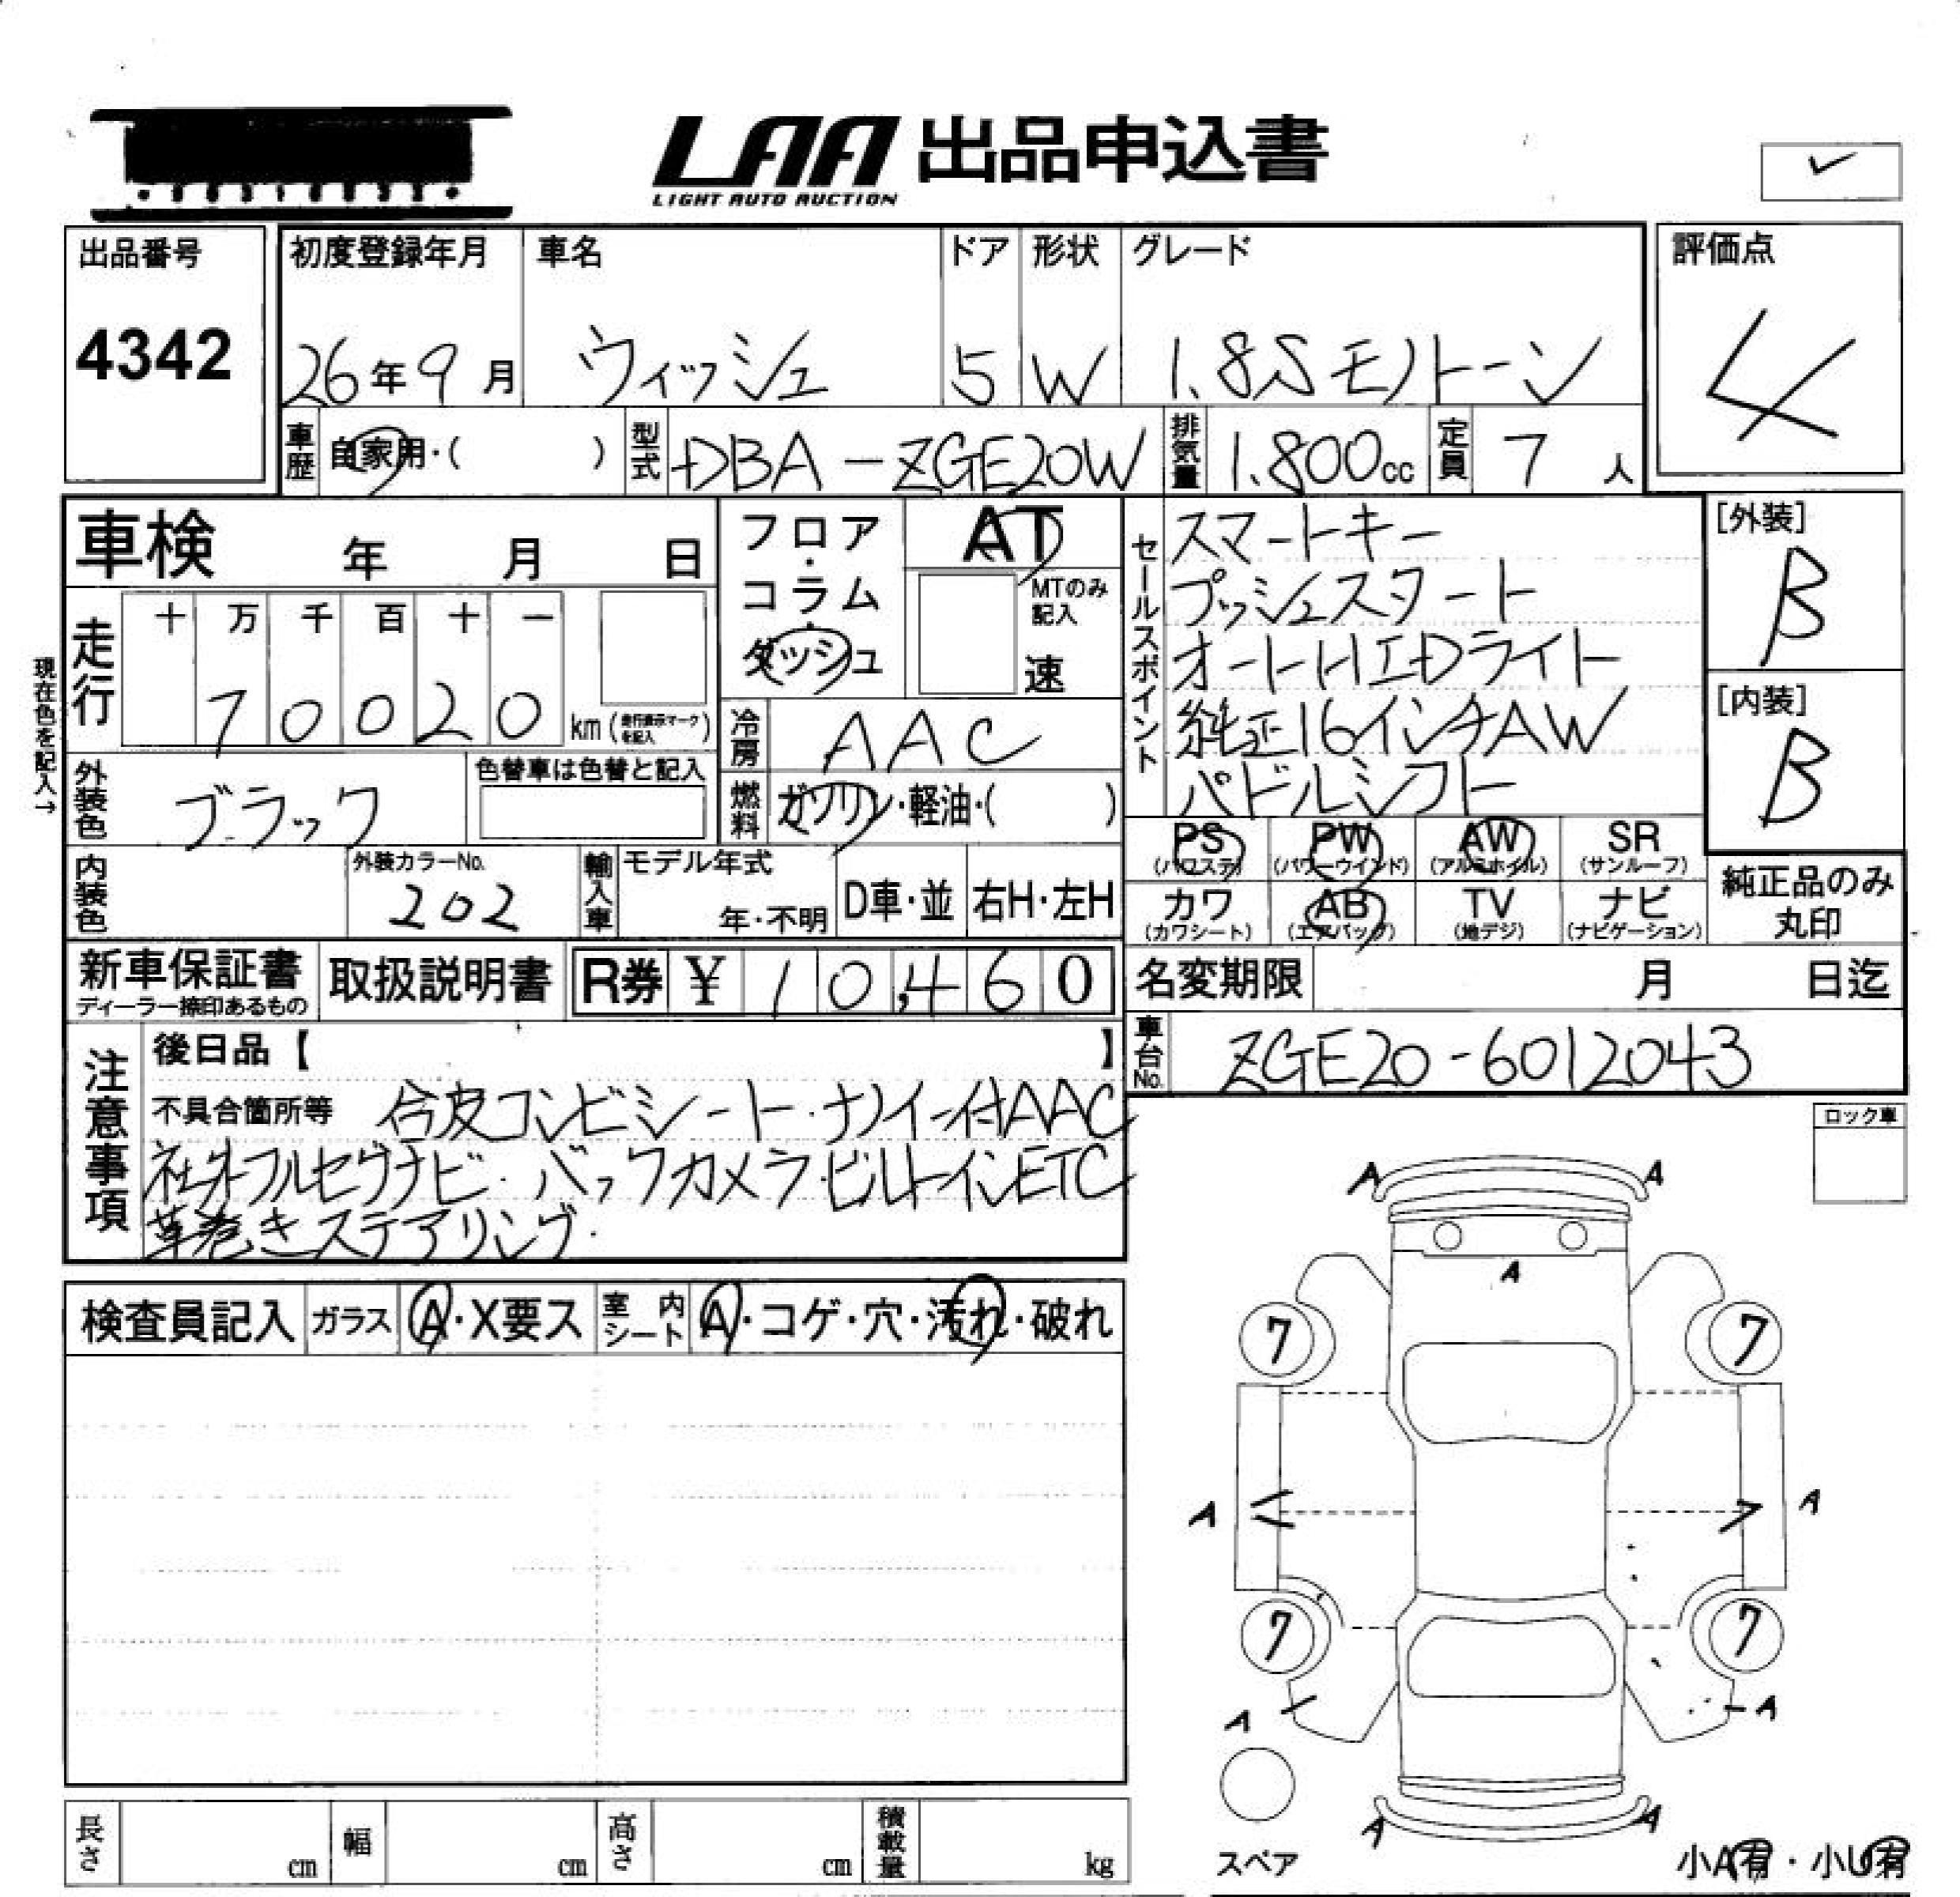 LAA 出品申込書
LIGHT AUTO AUCTION
出品番号
4342
初度登録年月
26年9月
車名
ウィッシュ
ドア
5
形状
W
グレード
1.8S モノトーン
評価点
4
車歴
自家用・( )
型式
DBA-ZGE20W
排気量
1.800cc
定員
7人
車検 年 月 日
現在色を記入→
走行
十 万 千 百 十 一
7 0 0 2 0 km (走行表示マークを記入)
フロア・コラム・ダッシュ
AT
MTのみ記入
速
冷房
AAC
燃料
ガソリン・軽油・( )
外装色
ブラック
色替車は色替と記入
内装色
外装カラーNo.
202
輸入車
モデル年式
年・不明
D車・並
右H・左H
セールスポイント
スマートキー
プッシュスタート
オートHIDライト
純正16インチAW
パドルシフト
[外装]
B
[内装]
B
PS (パワステ)
PW (パワーウインド)
AW (アルミホイル)
SR (サンルーフ)
カワ (カワシート)
AB (エアバッグ)
TV (地デジ)
ナビ (ナビゲーション)
純正品のみ
丸印
新車保証書
ディーラー捺印あるもの
取扱説明書
R券 ¥ 10,460
名変期限 月 日迄
車台No.
ZGE20-6012043
注意事項
後日品【 】
不具合箇所等 合皮コンビシート・ナノイー付AAC
社外フルセグナビ・バックカメラ・ビルトインETC
革巻きステアリング・
ロック車
検査員記入
ガラス
A・X要ス
室内シート
A・コゲ・穴・汚れ・破れ
A A
A
7 7
A A
7 7
A A
A A
スペア
小A有・小U有
長さ cm
幅 cm
高さ cm
積載量 kg